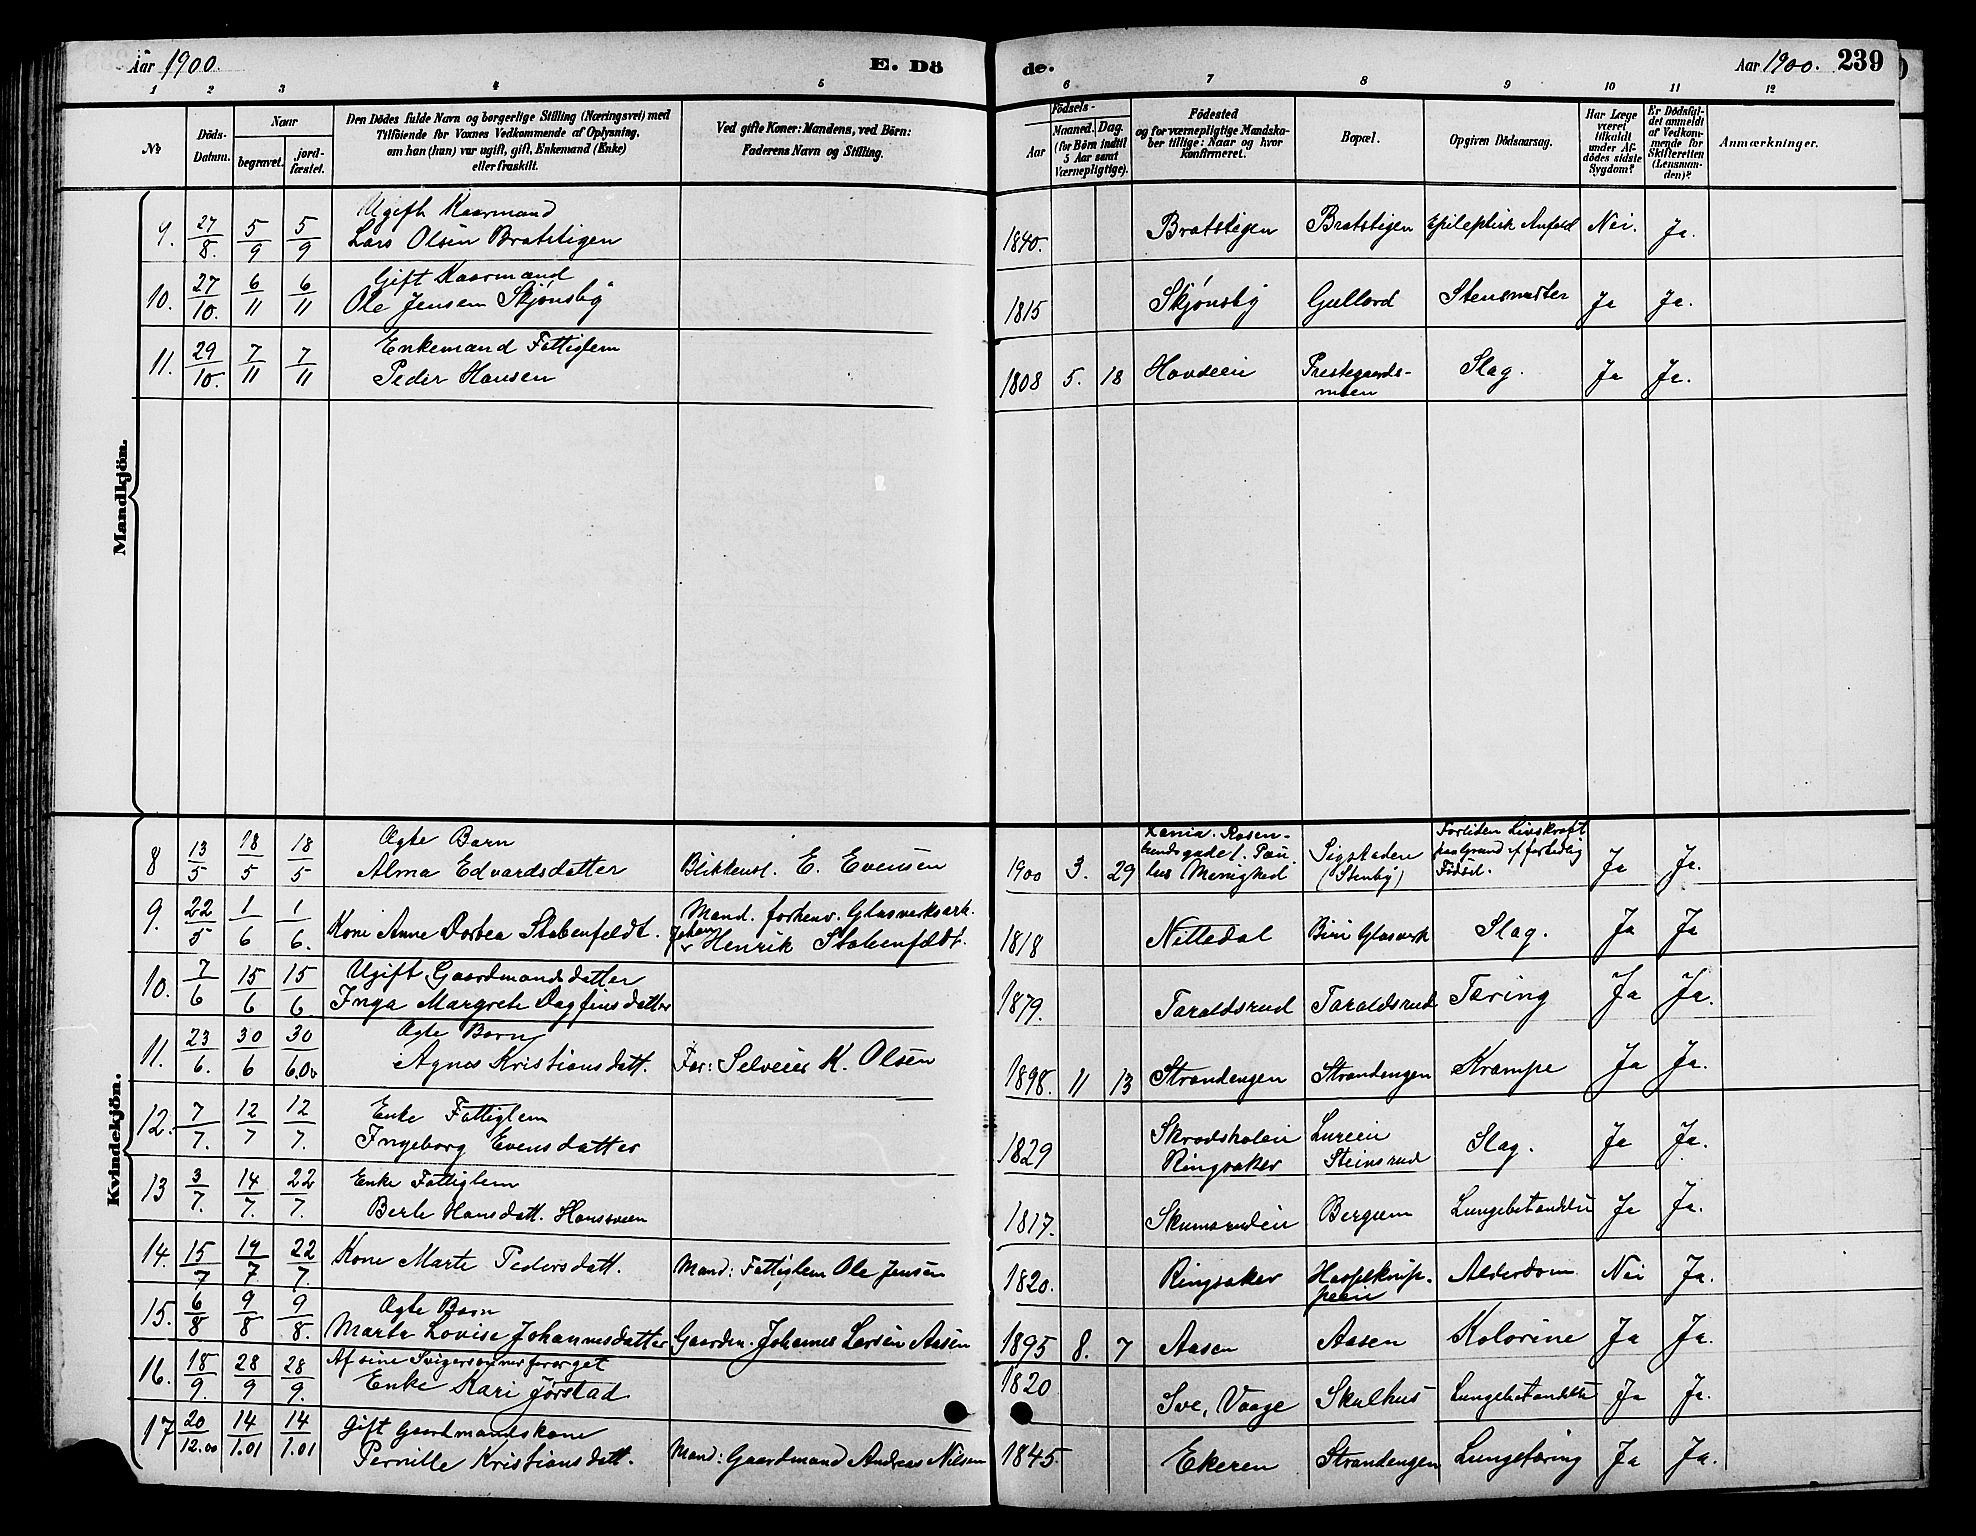 Aar 1900. E. Dö
de. Aar 1900. 239
1 2 3 4 5 6 7 8 9 10 11 12
No
Döds-Datum.
Naar
begravet.
jord-fæstet.
Den Dödes fulde Navn og borgerlige Stilling (Næringsvei) med
Tilföiende for Voxnes Vedkommende af Oplysning,
om han (hun) var ugift, gift, Enkemand (Enke)
eller fraskilt.
Ved gifte Koner: Mandens, ved Börn:
Faderens Navn og Stilling.
Födsels-
Aar
Maaned. Dag.
(for Börn indtil
5 Aar samt
Værnepligtige).
Födested
og for værnepligtige Mandska-
ber tillige: Naar og hvor
konfirmeret.
Bopæl.
Opgiven Dödsaarsag.
Har Læge
været
tilkaldt
under Af-
dödes sidste
Sygdom?
Er Dödsfal-
det anmeldt
af Vedkom-
mende for
Skifteretten
(Lensman-
den)?
Anmærkninger.
Mandkjön.
9. 27/8. 5/9 5/9 Ugift Kaarmand
Lars Olsen Bratstigen 1840. Bratstigen Bratstigen Epileptisk Anfald Nei. Ja.
10. 27/10. 6/11 6/11 Gift Kaarmand
Ole Jensen Skjönsby 1815 Skjönsby Gullord Stensmerter Ja Ja.
11. 29/10. 7/11 7/11 Enkemand Fattiglem
Peder Hansen 1808 5. 18 Hovdeeie Prestegaards-
moen Slag. Ja Ja.
Kvindekjön.
8 13/5 18/5 18/5 Ægte Barn
Alma Edvardsdatter Blikkensl. E. Evensen 1900 3. 29 Rosen-
Menighed Sigstadeie
(Stenby) For liden Livskraft
paa Grund af fortidlig
Födsel. Ja Ja.
9. 22/5 1/6 1/6. Kone Anne Dortea Stabenfeldt. Mand. forhenv. Glasverksarb.
Johan Henrik Stabenfeldt. 1818 Nittedal Biri Glasverk Slag. Ja Ja
10. 7/6 15/6 15/6. Ugift Gaardmandsdatter
Inga Margrete Dagfinsdatter 1879. Taraldsrud Taraldsrud Tæring Ja Ja.
11. 23/6. 30/6 30/6.00 Ægte Barn
Agnes Kristiansdatt. Far: Selveier K. Olsen 1898. 11 13 Strandengen Strandengen Krampe Ja Ja.
12. 7/7. 12/7 12/7. Enke Fattiglem
Ingeborg Evensdatter 1829 Ringsaker Steinsrud Slag. Ja Ja.
13 3/7. 14/7. 22/7. Enke Fattiglem
Berte Hansdatt. Hansveen 1817. Bergum Lungebetændelse Ja Ja.
14. 15/7 19/7 22/7. Kone Marte Pedersdatt. Mand: Fattiglem Ole Jensen 1820. Ringsaker Alderdom Nei Ja.
15. 6/8 9/8 9/8. Ægte Barn
Marte Lovise Johannesdatter Gaardm. Johannes Larsen Aasen 1895 8. 7 Aasen Aasen Kolorine Ja Ja.
16. 18/9. 28/9 28/9. Af sine Svigersønner forsørget
Enke Kari Jørstad 1820 Sve, Vaage Skalhus Lungebetændelse Ja Ja.
17 20/12.00 14/1.01 14/1.01 Gift Gaardmandskone
Pernille Kristiansdatt. Mand: Gaardmand Andreas Nilsen 1845. Ekeren Strandengen Lungetæring Ja Ja.